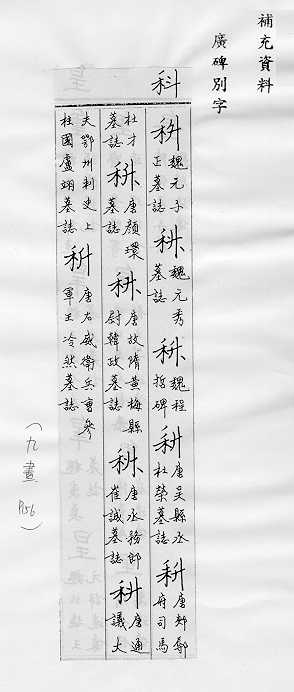 補充資料
廣碑別字
科
魏元子正墓誌 魏元秀墓誌 魏程哲碑 唐吳縣丞杜榮墓誌 唐鄀鄉府司馬
杜才墓誌 唐顏瓌墓誌 唐故隋黃梅縣尉韓政墓誌 唐丞務郎崔誠墓誌 唐通議大
夫鄂州刺史上柱國盧翊墓誌 唐右威衛兵曹參軍王泠然墓誌
(九畫 P156)